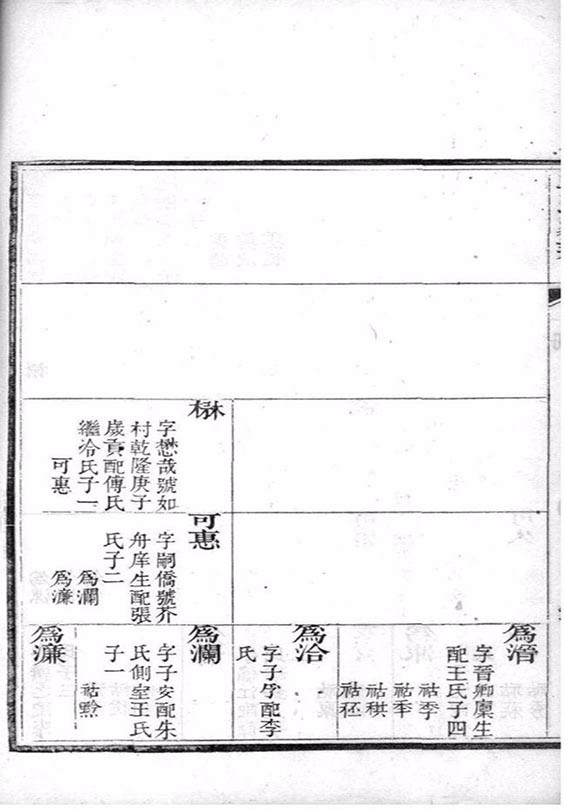 楙
字懋哉號如
村乾隆庚子
歲貢配傅氏
繼冾氏子一
可惠
可惠
字嗣僑號芥
舟庠生配張
氏子二
爲瀾
爲濂
爲溍
字晉卿廪生
配王氏子四
祜季
祜秊
祜稘
祜秠
爲冾
字子孚配李
氏
爲瀾
字子安配朱
氏側室王氏
子一
祜黔
爲濂